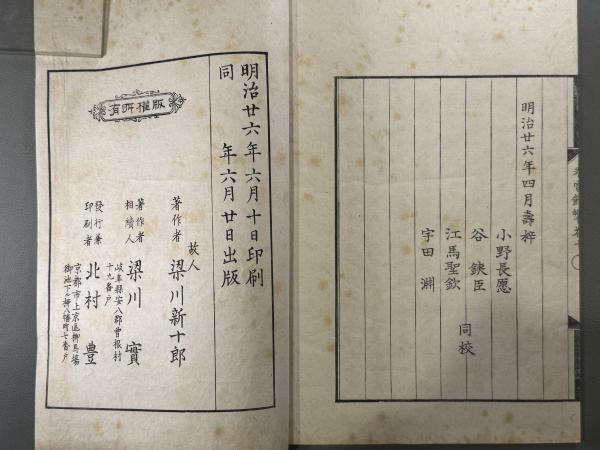 明治廿六年四月壽梓
小野長愿
谷 鐵臣
江馬聖欽
宇田 淵
同校
明治廿六年六月十日印刷
同 年六月廿日出版
版權所有
故人
著作者 梁川新十郎
著作者
相續人
梁川 實
岐阜縣安八郡曾根村
十九番戶
發行兼
印刷者
北村 豊
京都市上京區柳馬場
御池下ル押八幡町七番戶